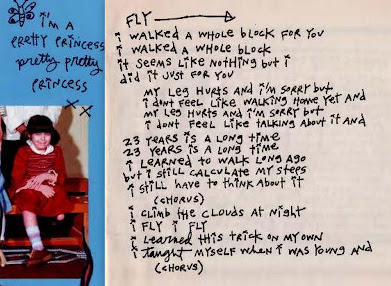 i'm a
pretty princess
pretty pretty
princess
FLY
i walked a whole block for you
i walked a whole block
it seems like nothing but i
did it just for you
my leg hurts and i'm sorry but
i dont feel like walking home yet and
my leg hurts and i'm sorry but
i dont feel like talking about it and
23 years is a long time
23 years is a long time
i learned to walk long ago
but i still calculate my steps
i still have to think about it
(chorus)
i climb the clouds at night
i fly i fly
i learned this trick on my own
i taught myself when i was young and
(chorus)